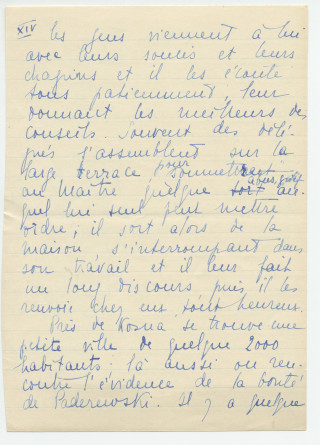 XIV les gens viennent à lui
avec leurs soucis et leurs
chagrins et il les écoute
tous patiemment, leur
donnant les meilleurs des
conseils. Souvent des délé-
gués s'assemblent sur la
large terrace, pour soumettre
au Maître quelque au-
quel lui seul peut mettre
ordre; il sort alors de la
maison s'interrompant dans
son travail et il leur fait
un long discours puis il les
renvoie chez eux, tout heureux.
Près de Kosna se trouve une
petite ville de quelque 2000
habitants; là aussi on ren-
contre l'évidence de la bonté
de Paderewski. Il y a quelque